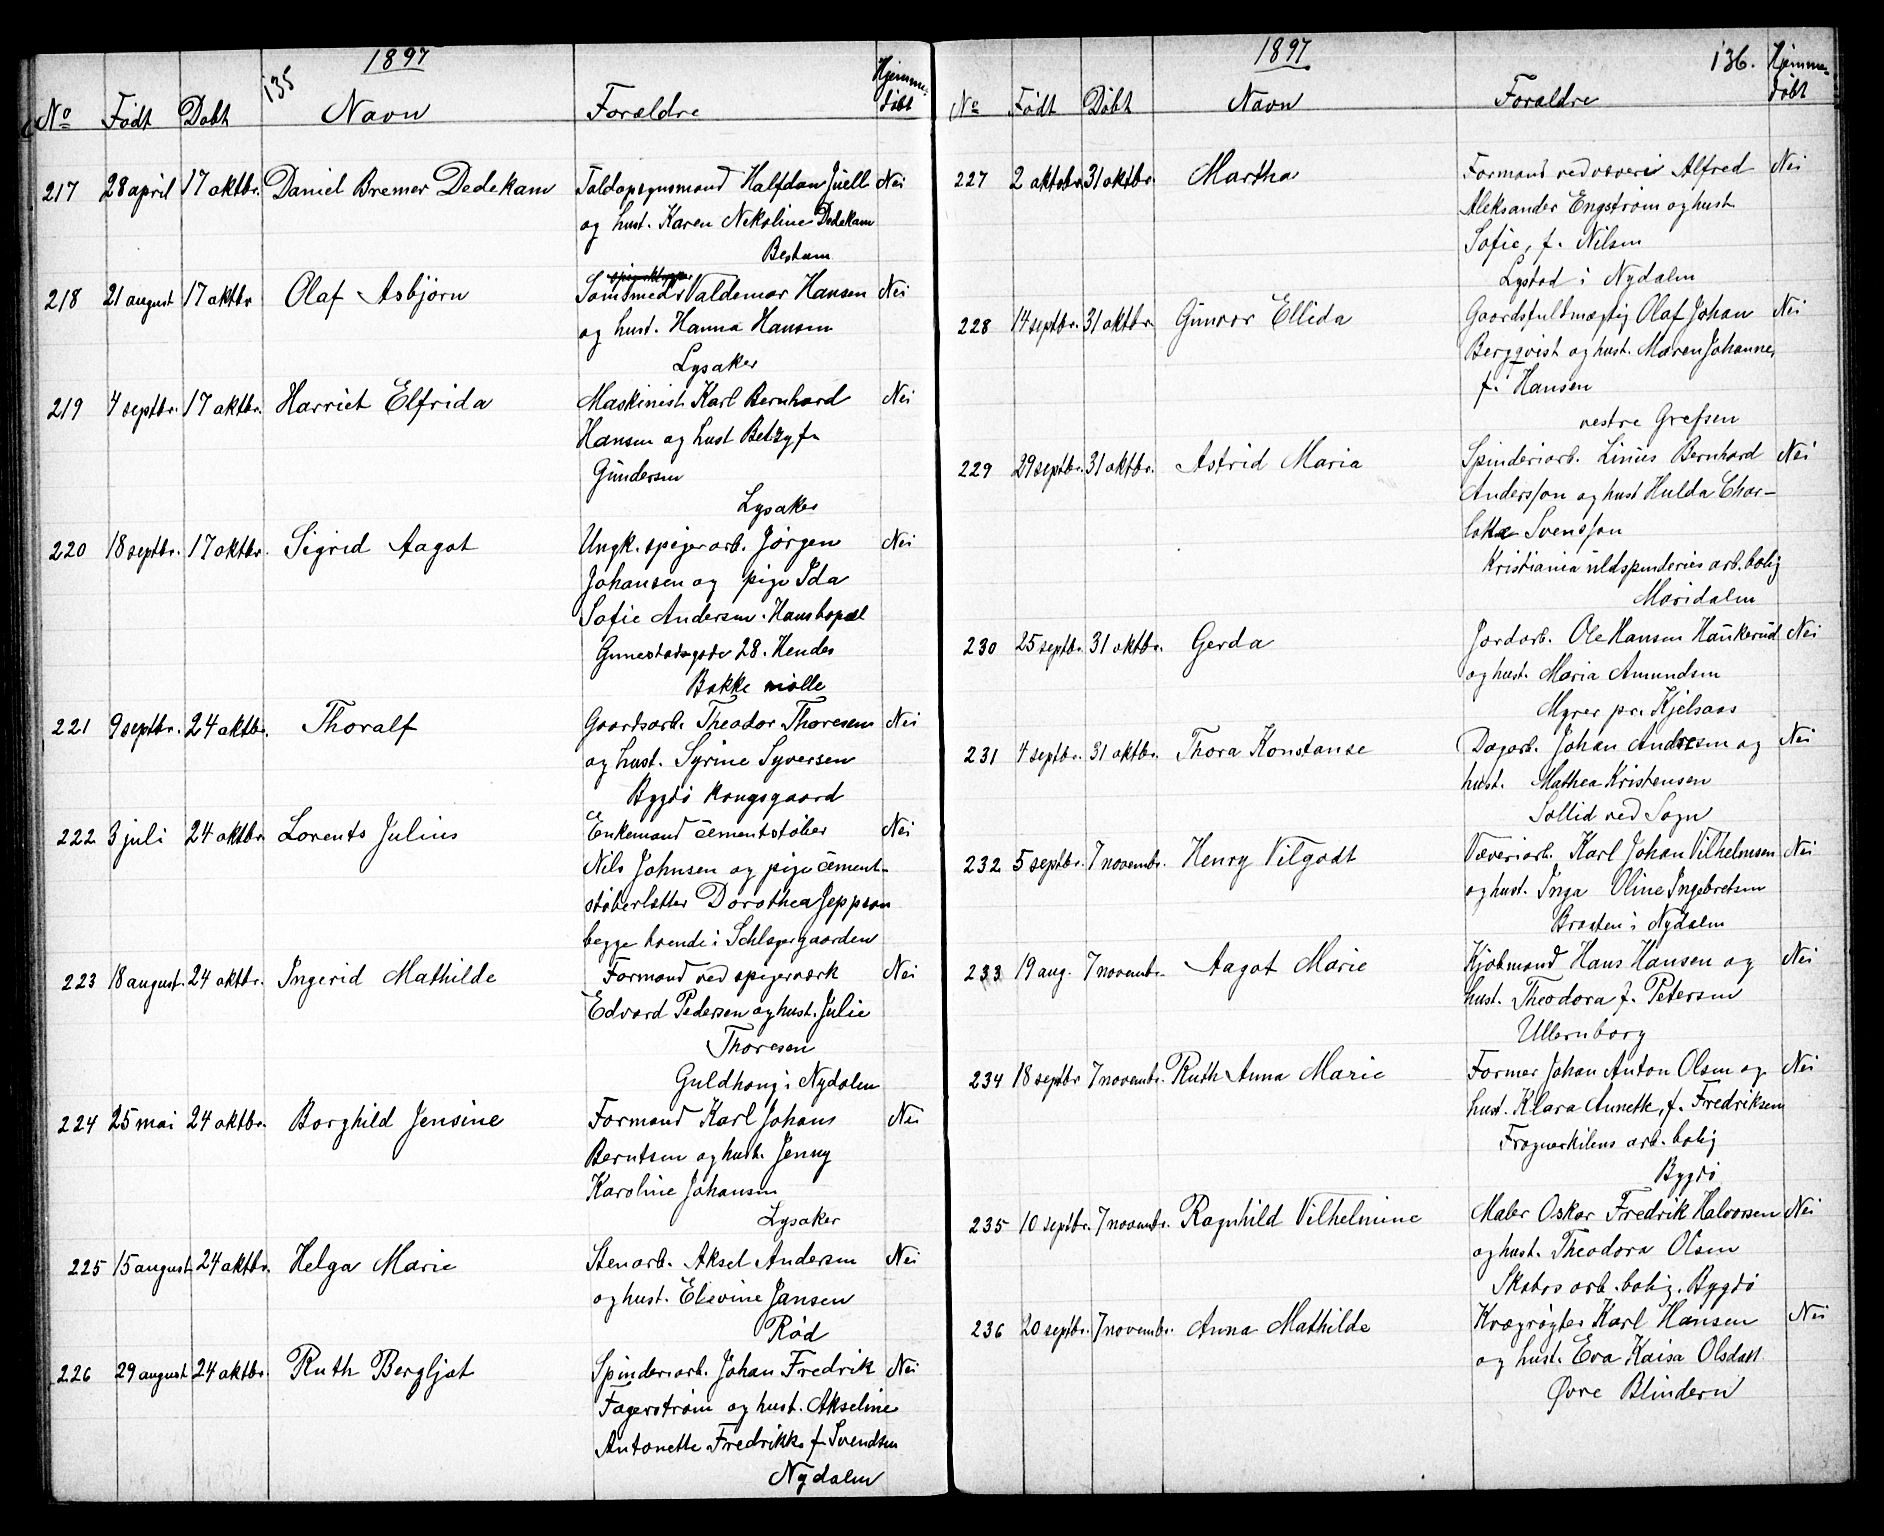 1897
135
No Født Døbt Navn Forældre Hjemme-
døbt
217 28 april 17 oktbr. Daniel Bremer Dedekam Toldopsynsmand Halfdan Juell Nei
og hust. Karen Nekoline Dedekam
Bestum
218 21 august 17 oktbr Olaf Asbjørn Valdemar Hansen Nei
og hust. Hanna Hansen
Lysaker
219 4 septbr. 17 oktbr. Harriet Elfrida Maskinist Karl Bernhard Nei
Hansen og hust Betzy f.
Gundersen
Lysaker
220 18 septbr. 17 oktbr. Sigrid Aagot Ungk. spigerarb. Jørgen Nei
Johansen og pige Ida
Sofie Andersen. Hans bopæl
28. Hendes
Bakke mølle
221 9 septbr. 24 oktbr. Thoralf Gaardsarb. Theodor Thoresen Nei
og hust. Syrine Syversen
Bygdø kongsgaard
222 3 juli 24 oktbr Lorents Julius Enkemand cementstøber Nei
Nils Johnsen og pige cement-
støberlætter Dorothea Jeppson
begge boende i Schlapgaarden
223 18 august. 24 oktbr. Ingerid Mathilde Formand ved spigerværk Nei
Edvard Pedersen og hust. Julie
Thoresen
Guldhaug i Nydalen
224 25 mai 24 oktbr. Borghild Jensine Formand Karl Johans Nei
Berntsen og hust. Jenny
Karoline Johansen
Lysaker
225 15 august 24 oktbr. Helga Marie Stenarb. Aksel Andersen Nei
og hust. Elevine Jansen
Rød
226 29 august 24 oktbr. Ruth Bergljot Spinderiarb. Johan Fredrik Nei
Fagerstrøm og hust. Akseline
Antonette Fredrikke f. Svendsen
Nydalen
1897
136.
No Født Døbt Navn Forældre Hjemme-
døbt
227 2 oktobr. 31 oktbr. Martha Formand ved væveri Alfred Nei
Aleksander Engstrøm og hust
Sofie, f. Nilsen
Lystad i Nydalen
228 14 septbr. 31 oktbr. Gunvor Ellida Gaardsfuldmægtig Olaf Johan Nei
Bergqvist og hust. Maren Johanne,
f. Hansen
vestre Grefsen
229 29 septbr. 31 oktbr. Astrid Maria Spinderiarb. Linus Bernhard Nei
Andersson og hust Hulda Char-
lotte Svensson
Kristiania uldspinderies arb. bolig
Maridalen
230 25 septbr. 31 oktbr. Gerda Jordarb. Ole Hansen Haukerud Nei
og hust. Maria Amundsen
Myrer pr. Kjelsaas
231 4 septbr. 31 oktbr. Thora Konstanse Dagarb. Johan Andresen og Nei
hust. Mathea Kristensen
Sollid ved Sogn
232 5 septbr. 7 novembr. Henry Vilgodt Væveriarb. Karl Johan Vilhelmsen Nei
og hust. Inga Oline Ingebretsen
Braaten i Nydalen
233 19 aug. 7 novembr. Aagot Marie Kjøbmand Hans Hansen og Nei
hust. Theodora f. Petersen
Ullernborg
234 18 septbr 7 novembr. Ruth Anna Marie Former Johan Anton Olsen og Nei
hust. Klara Annette, f. Fredriksen
Frognerkilens arb. bolig
Bygdø
235 10 septbr. 7 novembr. Ragnhild Vilhelmine Maler Oskar Fredrik Halvorsen Nei
og hust. Theodora Olsen
Skabos arb. bolig. Bygdø
236 20 septbr. 7 novembr. Anna Mathilde Krægrøgter Karl Hansen Nei
og hust. Eva Kaisa Olsdatt
Øvre Blindern